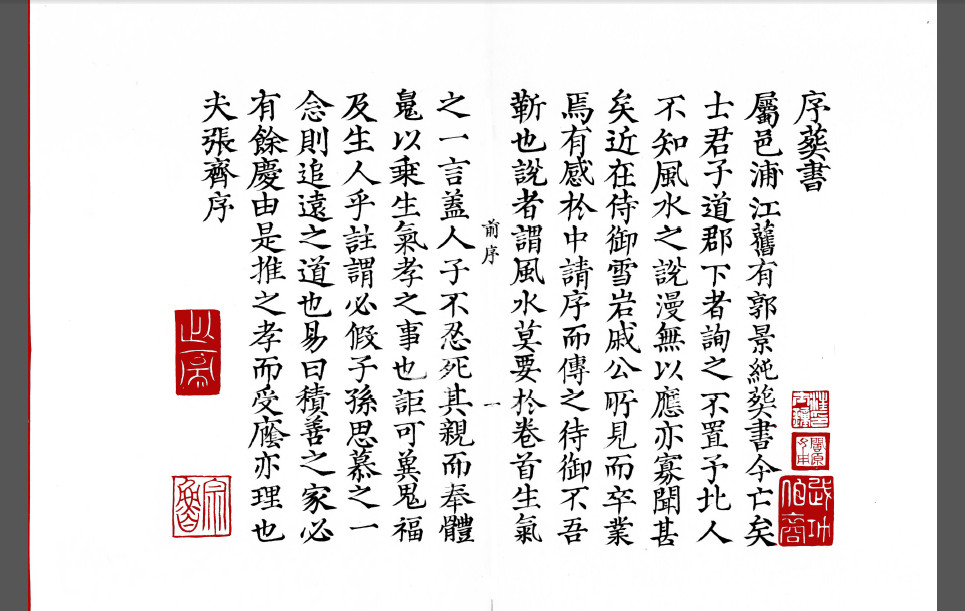 序葬書
屬邑浦江舊有郭景純葬書今亡矣
士君子道郡下者詢之不置予北人
不知風水之說漫無以應亦寡聞甚
矣近在侍御雪岩戚公所見而卒業
焉有感於中請序而傳之侍御不吾
靳也說者謂風水莫要於卷首生氣
前序
一
之一言蓋人子不忍死其親而奉體
以乘生氣孝之事也詎可冀鬼福
及生人乎註謂必假子孫思慕之一
念則追遠之道也易曰積善之家必
有餘慶由是推之孝而受廕亦理也
夫張齊序